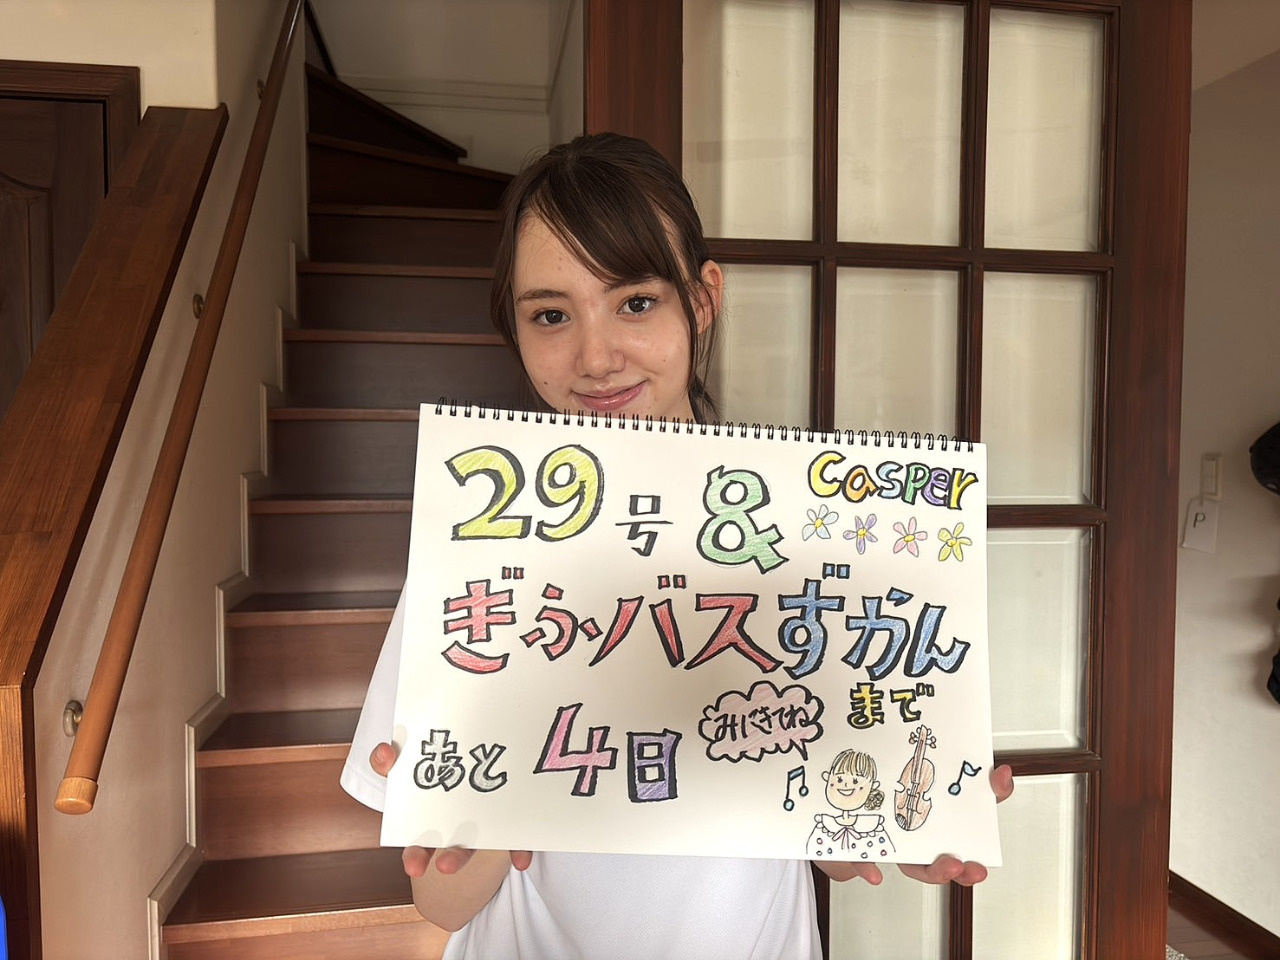 29号 & Casper
ぎふバスずかん
まで
みにきてね
あと 4日
P